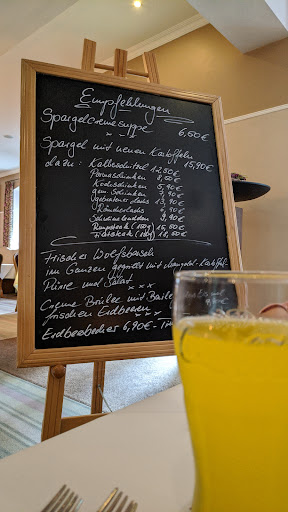 Empfehlungen
Spargelcremesuppe 6,50€
Spargel mit neuen Kartoffeln 15,90€
dazu: Kalbsschnitzel 12,50€
Parmaschinken 8,50€
Kochschinken 5,90€
gem. Schinken 7,90€
gebratener Lachs 13,90€
Räucherlachs 9,90€
Schweinelendchen 8,90€
Rumpsteak (180g) 15,60€
Filetsteak (180g) 18,60€
Frischer Wolfsbarsch
im Ganzen gegrillt mit Mangold-Kartoffel-
Püree und Salat
Creme Brulee mit Baileys
frischen Erdbeeren
Erdbeerbecher 6,90€